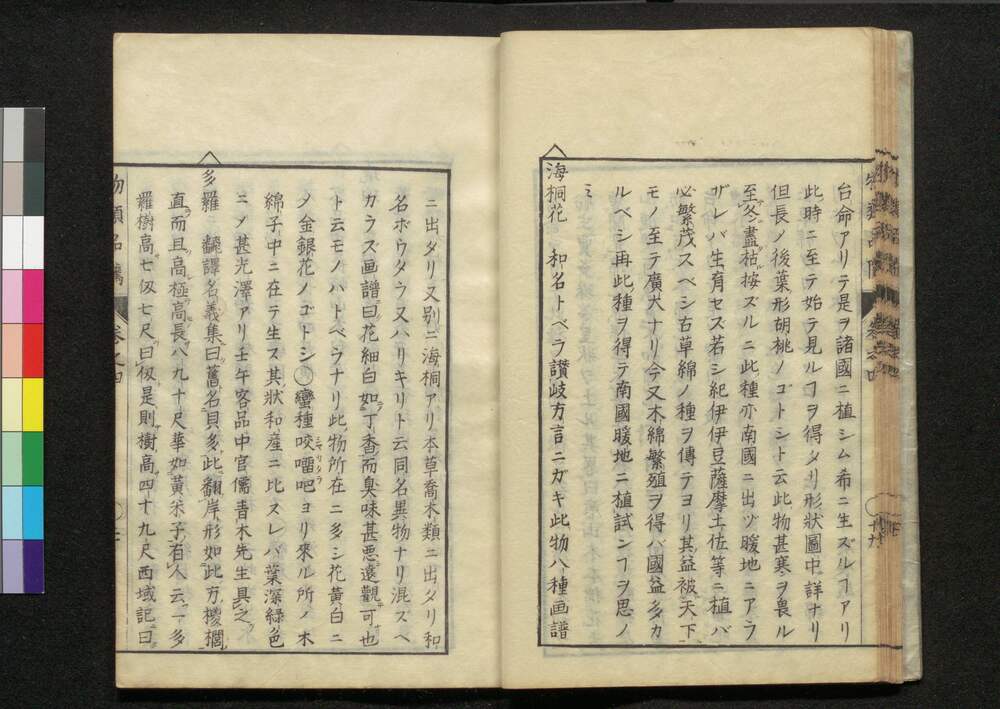 台命アリテ是ヲ諸國ニ植シム希ニ生ズルヿアリ
此時ニ至テ始テ見ルヿヲ得タリ形狀圖中詳ナリ
但長ノ後葉形胡桃ノゴトシト云此物甚寒ヲ畏ル
至冬盡枯按ズルニ此種亦南國ニ出ヅ暖地ニアラ
ザレバ生育セズ若シ紀伊伊豆薩摩土佐等ニ植バ
必繁茂スベシ古草綿ノ種ヲ傳テヨリ其益被天下
モノ至テ廣大ナリ今又木綿繁殖ヲ得バ國益多カ
ルベシ再此種ヲ得テ南國暖地ニ植試ンヿヲ思ノ
ミ
海桐花 和名トベラ讃岐方言ニガキ此物八種画譜
ニ出タリ又別ニ海桐アリ本草喬木類ニ出タリ和
名ボウダウ又ハリキリト云同名異物ナリ混ズベ
カラズ画譜曰花細白如丁香而臭味甚悪遠觀可也
ト云モノハトベラナリ此物所在ニ多シ花黃白ニ
〆金銀花ノゴトシ○蠻種咬𠺕吧ヨリ來ル所ノ木
シヤガタラ
綿子中ニ在テ生ス其狀和産ニ比スレバ葉深緑色
ニ〆甚光澤アリ壬午客品中官儒青木先生具之
多羅 飜譯名義集曰舊名貝多此翻岸形如此方椶櫚
直而且高極高長八九十尺華如黃米子有人云一多
羅樹高七仭七尺曰仭是則樹高四十九尺西域記曰
物類品隲 卷之四